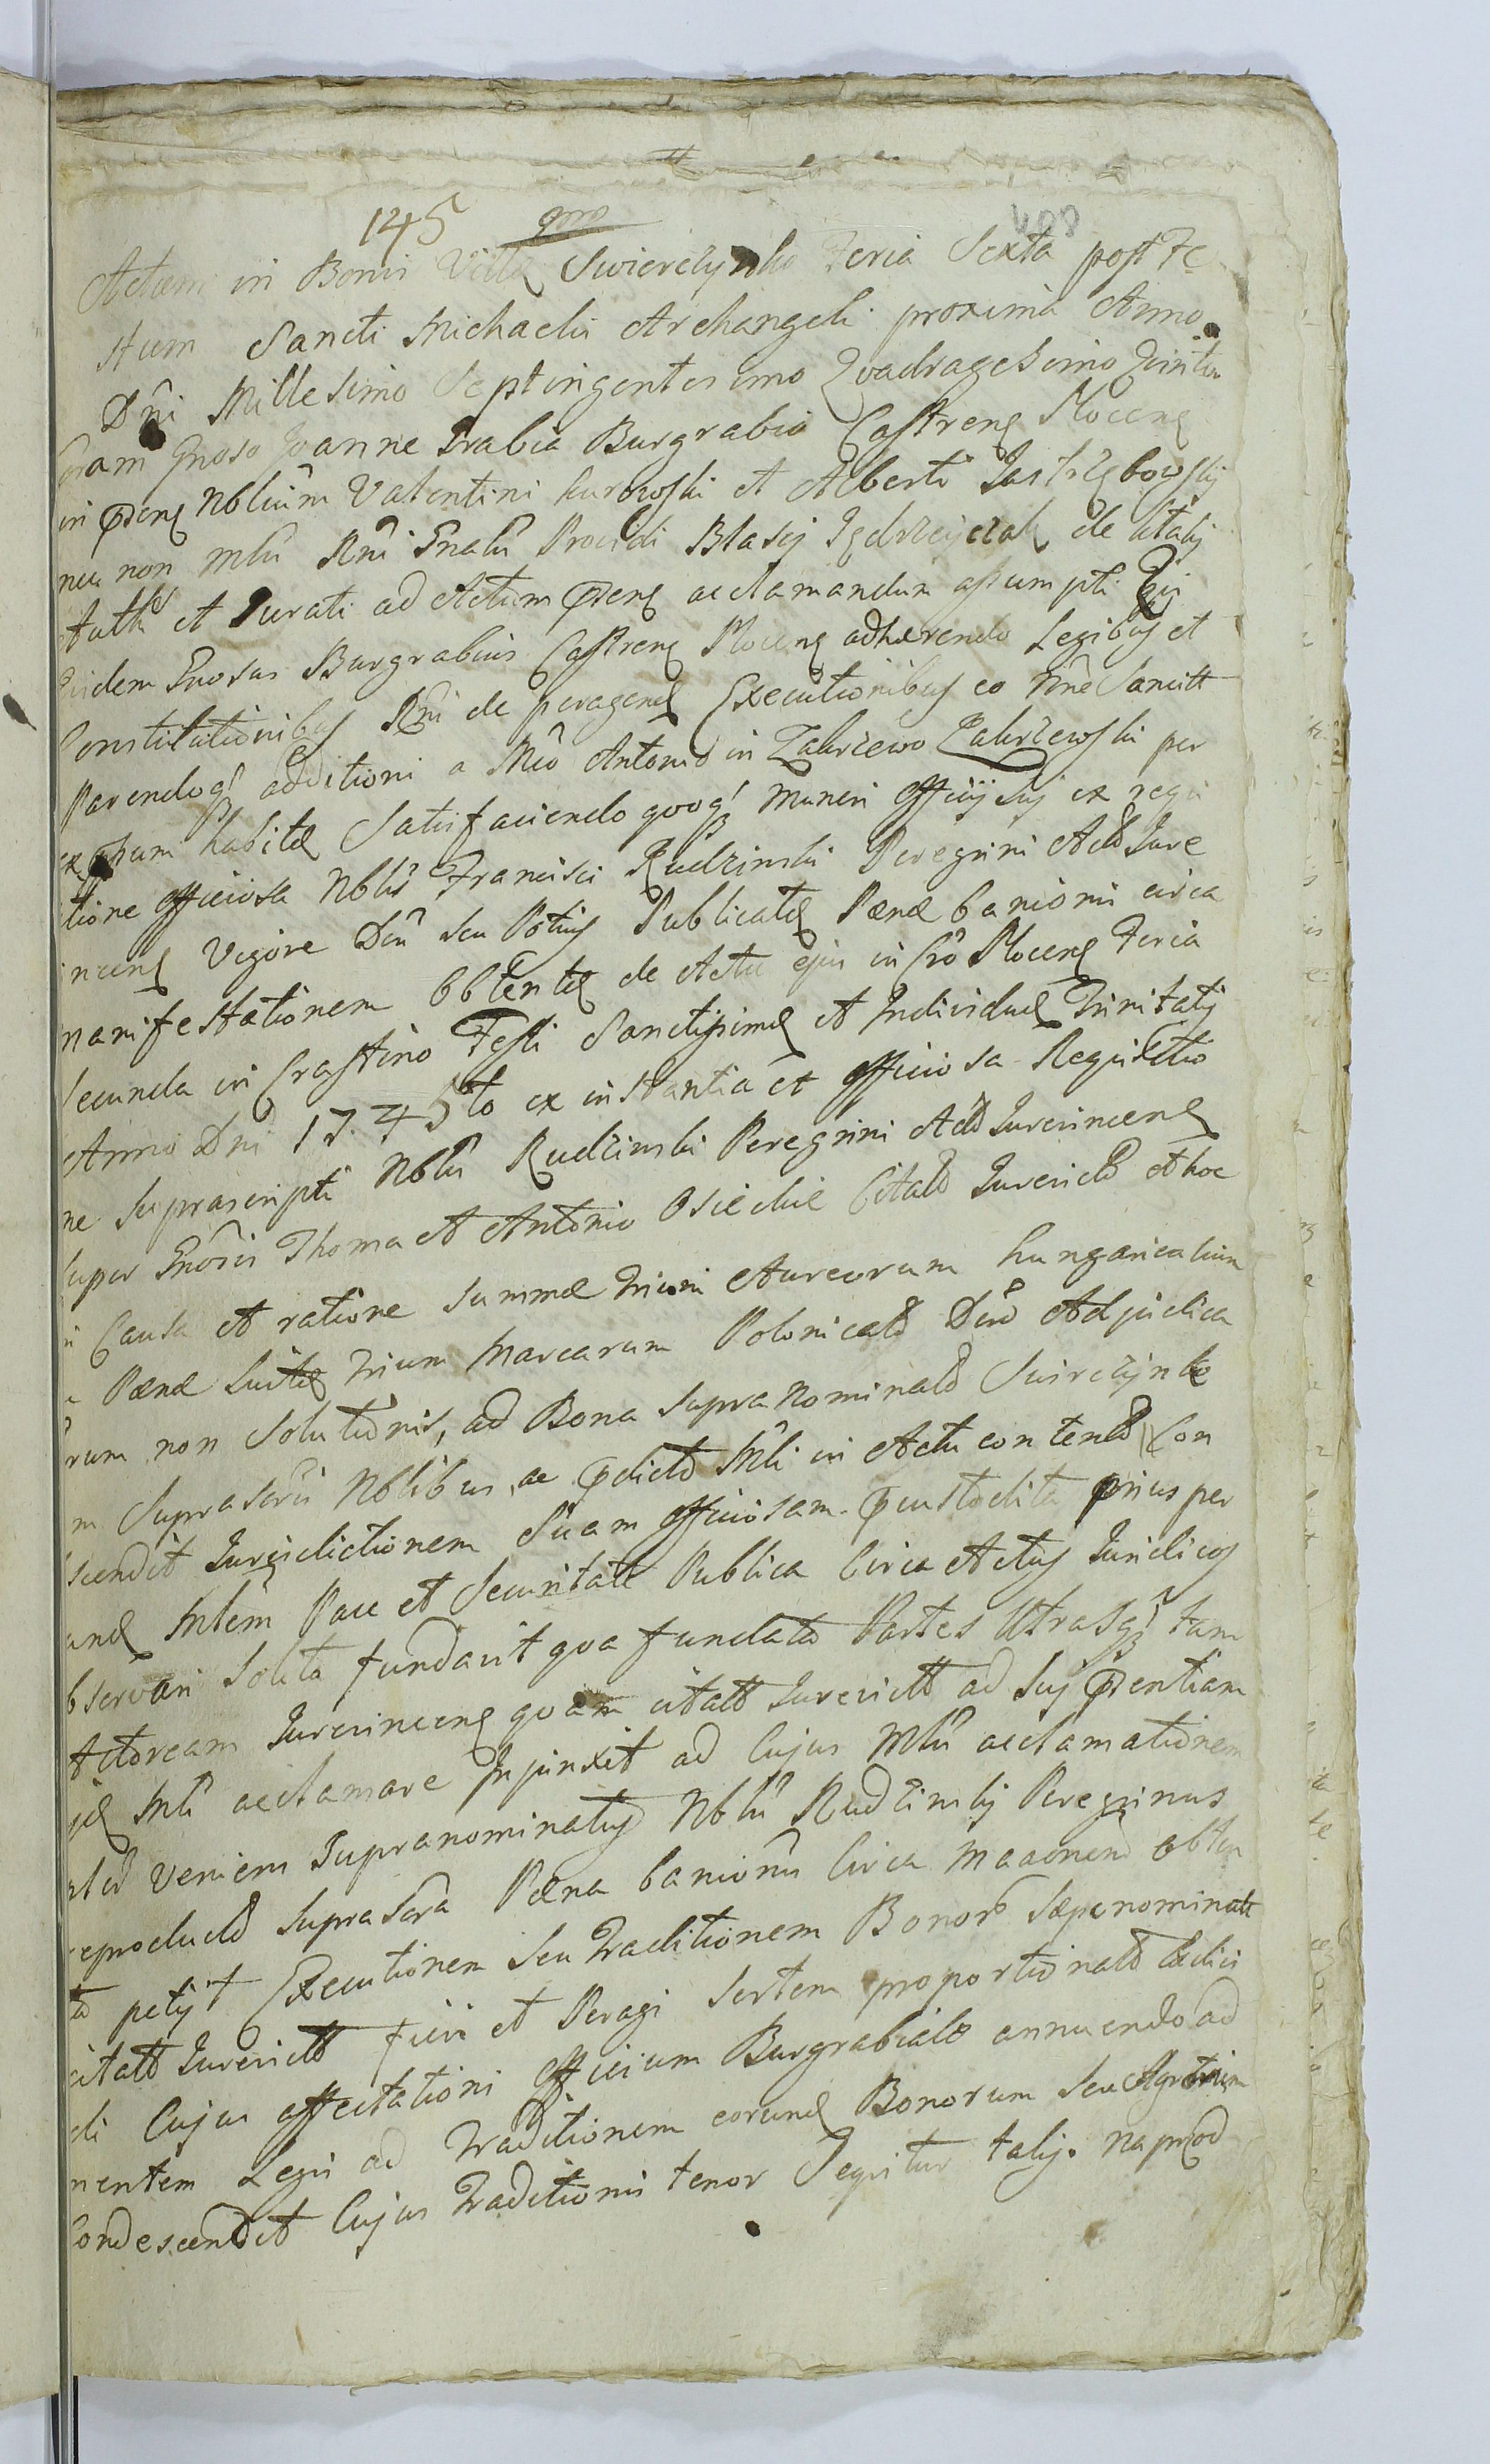 145 408
Actum in Bonis Villa Swierczynko Feria Sexta post Fe
stum Sancti Michaelis Archangeli proxima Anno
Dni Millesimo Septingentesimo Qvadragesimo Qvinto
Coram Gnoso Joanne Grabia Burgrabio Castren Plocen
in pten Nblium Valentini Kurowski et Alberti Jastrzębowskij
nec non Mlii Rni Gnalii Providi Blasij Jędrzeyczak de
et Jurati ad Actum pten acclamandum assumpti Qvi
qvidem Gnosus Burgrabius Castren Plocen adhærendo Legibus et
Constitutionibus Rni de peragen Executionibus eo nne Sancitt
Parendoq additioni a Mco Antonio in Zakrzewo Zakrzewski per
habitæ Satisfaciendo qvoq muneri Officij Sui ex reqvi
tione officiosa Nblis Francisci Rudzinski Peregrini Act Jure
vincen Vigore Dni seu Potius Publicatæ Pænæ banionis circa
manifestationem Obtentæ de Actu ejus in Cro Plocen Feria
Secunda in Crastino Festi Sanctissimæ et Individuæ Trinitatis
Anno Dni 1745to ex instantia et officiosa Reqvisitio
ne suprascripti Nblis Rudzinski Peregrini Act Jurevincen
super Gnosis Thoma et Antonio Osieckie Citat Jurevict et hoc
in Causa et ratione summæ Aureorum hungaricalium
Pænæ Luitæ trium Marcarum Polonicalt Dno Adjudica
rum non Solutionis, ad Bona Supranominat Swirczynko
m Suprascris Nblibus, ac pdicto Mli in Actu content Con
scendit Jurisdictionem Suam Officiosam pcustodita prius per
und Mlem Pace et Securitate Publica Circa Actus Juridicos
bservari Solita fundavit qva fundata Partes Utrasq tam
Actoream Jurevincen qvam citatt Jurevictt ad sui ptentiam
Mli acclamare Injunxit ad Cujus Mlii acclamationem
veniens Supranominatus Nblis Rudzinskij Peregrinus
reproducto Suprascra Pæna banionis Circa obten
ta petijt Executionem seu Traditionem Bonor Sæpenominatt
citatt Jurevictt fieri et Peragi Sortem proportionatt
di Cujus affectationi Officium Burgrabiale annuendo ad
mentem Legis ad Traditionem eorund Bonorum Seu Agrorum
Condescendit Cujus Traditionis tenor Seqvitur talis. naprzod